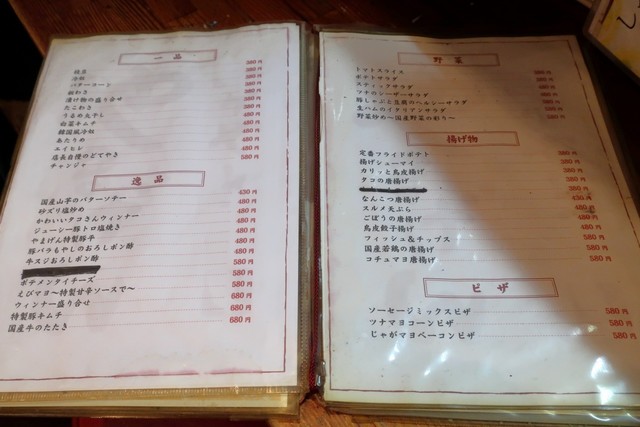 一品
枝豆
冷奴
バターコーン
板わさ
漬け物の盛り合せ
たこわさ
うるめ丸干し
白菜キムチ
韓国風冷奴
あたりめ
エイヒレ
店長自慢のどてやき
チャンジャ
380円
580円
逸品
国産山芋のバターソテー 430円
砂ズリ塩炒め 480円
かわいいタコさんウィンナー 480円
ジューシー豚トロ塩焼き 480円
やまげん特製豚平 480円
豚バラともやしのおろしポン酢 480円
牛スジおろしポン酢 580円
ポテメンタイチーズ 580円
えびマヨ～特製甘辛ソースで～ 580円
ウィンナー盛り合せ 680円
特製豚キムチ 680円
国産牛のたたき 680円
野菜
トマトスライス
ポテトサラダ
スティックサラダ
ツナのシーザーサラダ
豚しゃぶと豆腐のヘルシーサラダ
生ハムのイタリアンサラダ
野菜炒め～国産野菜の彩り～
揚げ物
定番フライドポテト 380円
揚げシューマイ 380円
カリッと鳥皮揚げ 380円
タコの唐揚げ 380円
なんこつ唐揚げ 430円
スルメ天ぷら 480円
ごぼうの唐揚げ 480円
鳥皮餃子揚げ 480円
フィッシュ＆チップス 580円
国産若鶏の唐揚げ 580円
コチュマヨ唐揚げ 580円
ピザ
ソーセージミックスピザ 580円
ツナマヨコーンピザ 580円
じゃがマヨベーコンピザ 580円